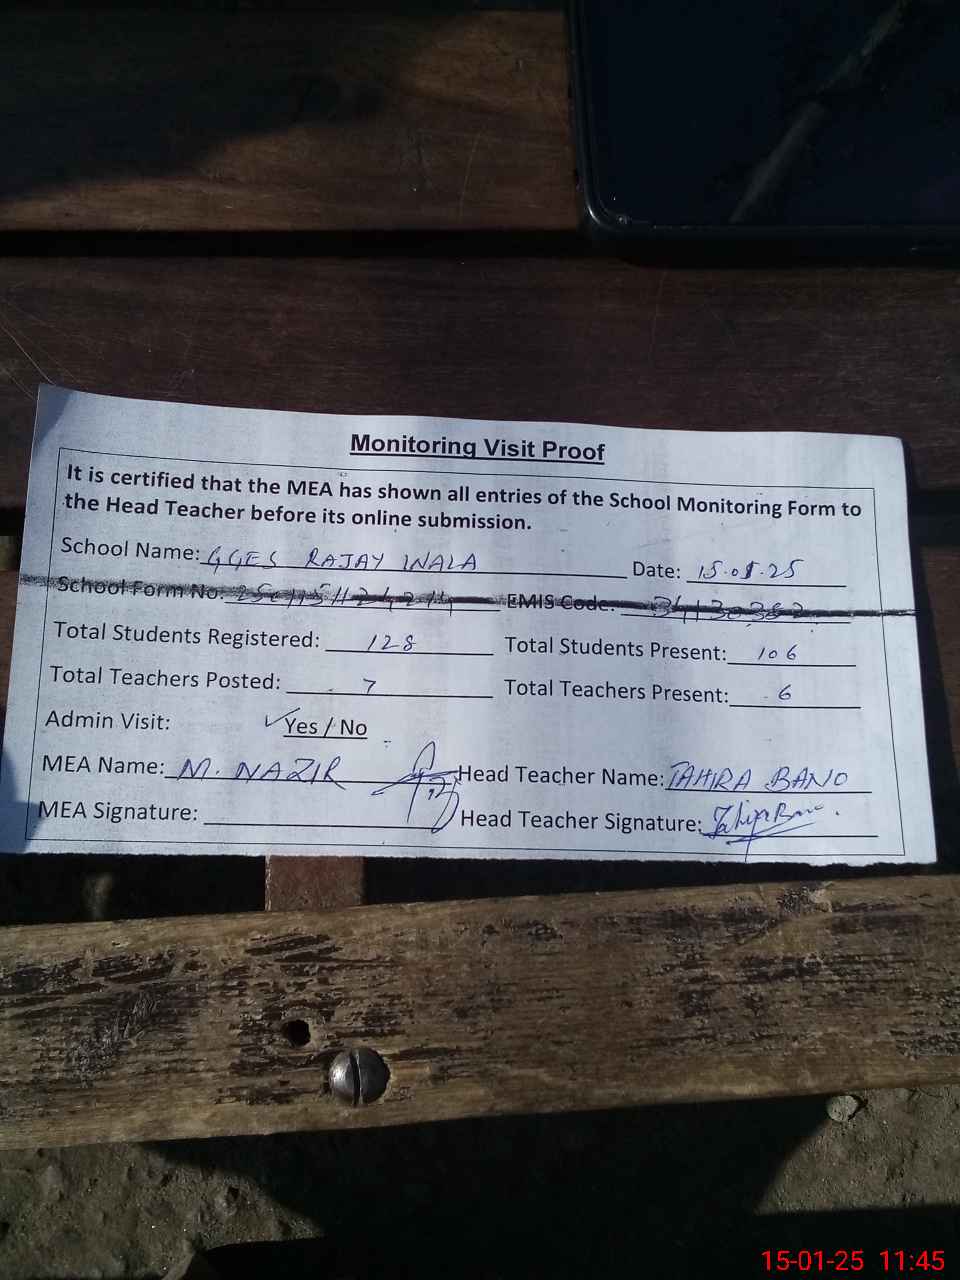 Monitoring Visit Proof
It is certified that the MEA has shown all entries of the School Monitoring Form to
the Head Teacher before its online submission.
School Name: GGES RAJAY WALA Date: 15.01.25
School Form No: EMIS Code:
Total Students Registered: 128 Total Students Present: 106
Total Teachers Posted: 7 Total Teachers Present: 6
Admin Visit: Yes / No
MEA Name: M. NAZIR Head Teacher Name: TAHIRA BANO
MEA Signature: Head Teacher Signature: Tahira Bano
15-01-25 11:45